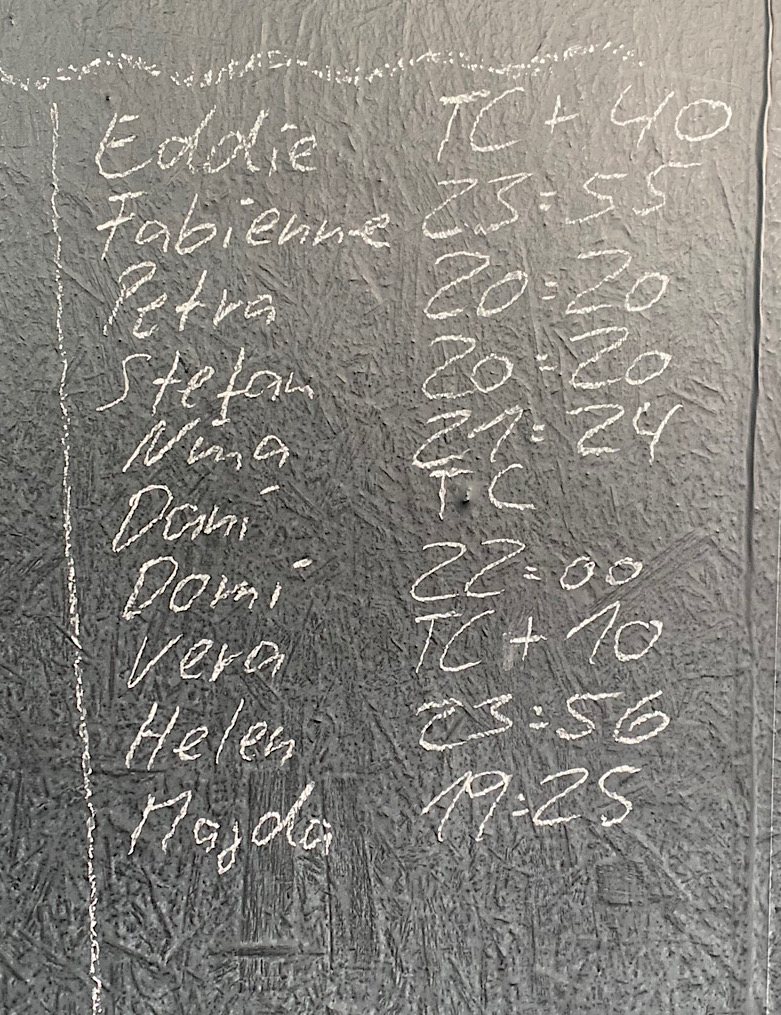 Eddie TC + 40
Fabienne 23:55
Petra 20:20
Stefan 20:20
Nina 21:24
Dani TC
Domi 22:00
Vera TC + 10
Helen 23:56
Majda 19:25